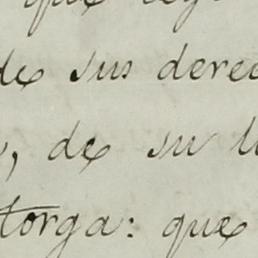 que
de sus derec
, de su l
torga: que